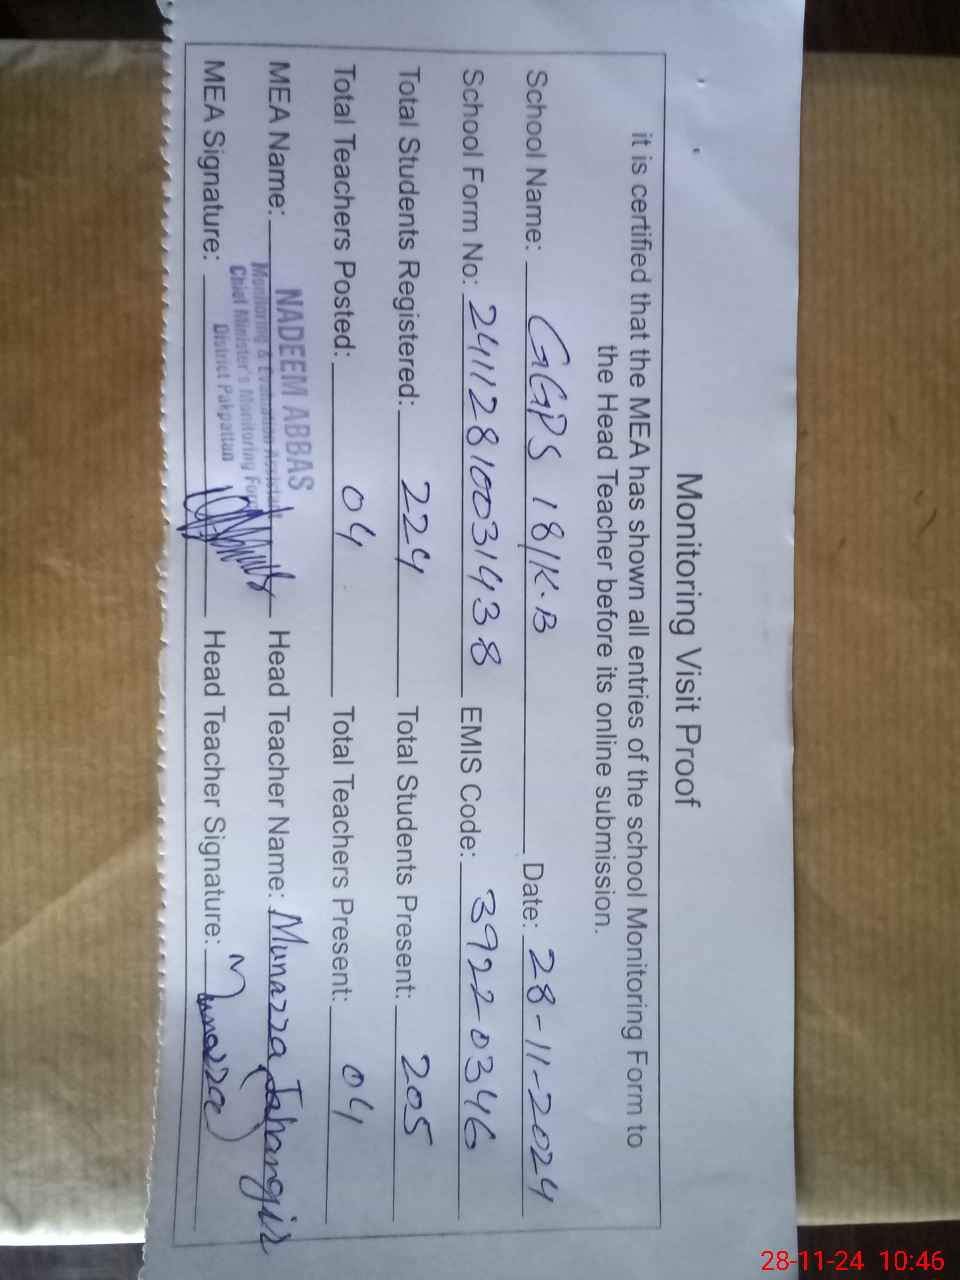 Monitoring Visit Proof
it is certified that the MEA has shown all entries of the school Monitoring Form to
the Head Teacher before its online submission.
School Name: GGPS 18/K.B Date: 28-11-2024
School Form No: 24112810031438 EMIS Code: 39220346
Total Students Registered: 224 Total Students Present: 205
Total Teachers Posted: 04 Total Teachers Present: 04
MEA Name: NADEEM ABBAS Head Teacher Name: Munazza Jahangir
Monitoring & Evaluation Assistant
Chief Minister's Monitoring Force
District Pakpattan
MEA Signature: Head Teacher Signature: Munazza
28-11-24 10:46